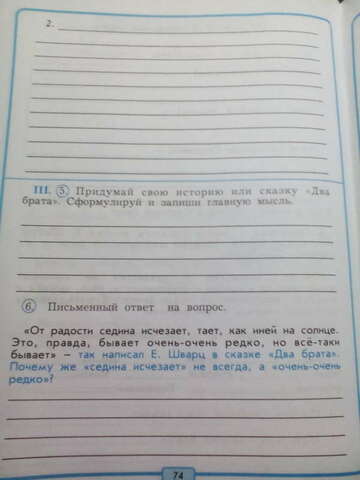 2.
III. 5. Придумай свою историю или сказку «Два
брата». Сформулируй и запиши главную мысль.
6. Письменный ответ на вопрос.
«От радости седина исчезает, тает, как иней на солнце.
Это, правда, бывает очень-очень редко, но всё-таки
бывает» – так написал Е. Шварц в сказке «Два брата».
Почему же «седина исчезает» не всегда, а «очень-очень
редко»?
74